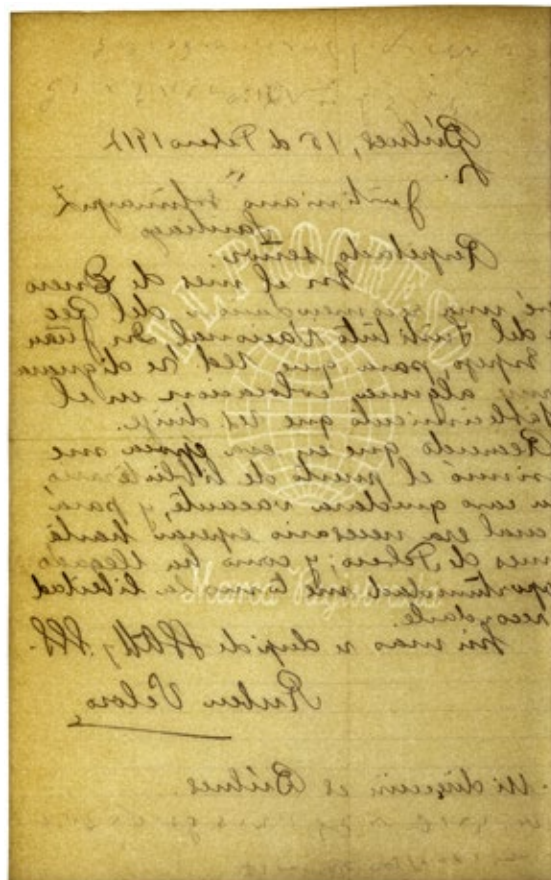 Búlnes, 15 d Febrero 1912
Sr.
Justiniano Sotomayor
Santiago
Respetado señor:
En el mes de Enero
una recomendacion del Rec
del Instituto Nacional, Dn Juan
Espejo, para que Ud. se dignara
alguna colocacion en el
establecimiento que Ud. dirije.
Recuerdo que en esa época me
el puesto de bibliotecario,
caso quedara vacante, y para
cual era necesario esperar hasta
mes de Febrero; y como ha llegado
oportunidad me tomo la libertad
recordarle.
Sin mas se despide
Ruben Veloso
Mi direccion es Búlnes.
EL PROGRESO
Marca Registrada